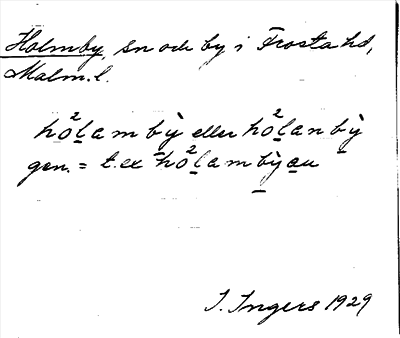 Holmby, sn och by i Frosta hd,
Malm. l.
hò²lam bỳ eller hò²lan bỳ
gen. = t. ex hò²lam bỳ au
I. Ingers 1929